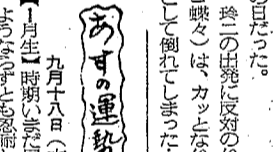 の日だった。
玲二の出発に反対の
蝶々）は、カッとな
して倒れてしまった
あすの運勢
九月十八日（
【１月生】時期いまだ
ようならずとも忍耐